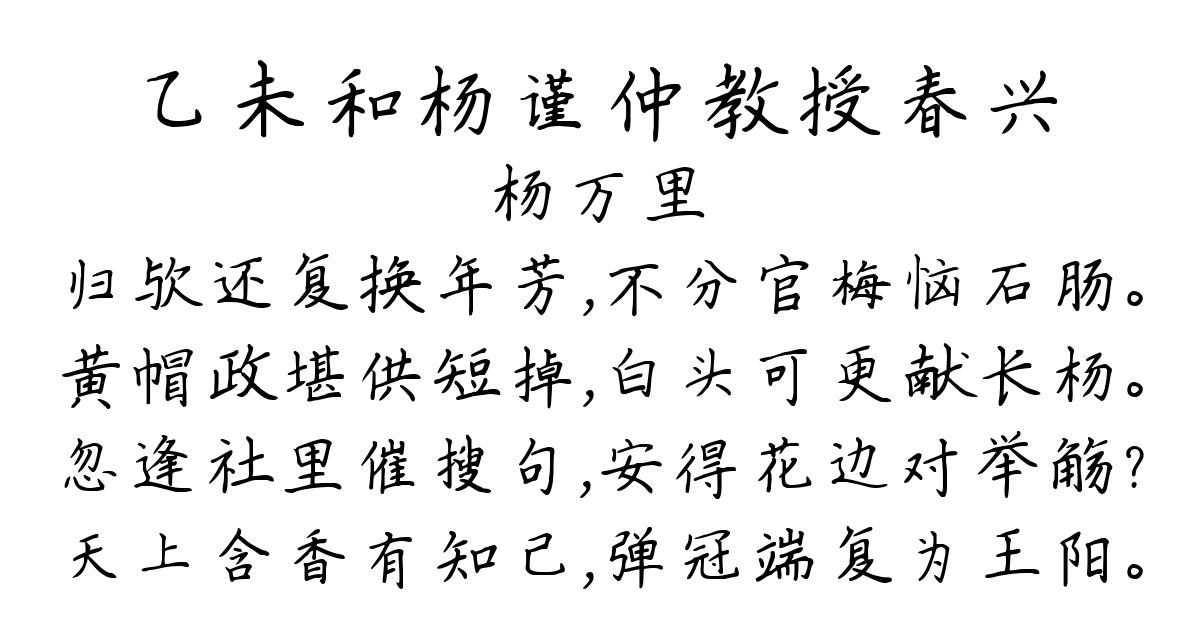 乙未和杨谨仲教授春兴
杨万里
归欤还复换年芳,不分官梅恼石肠。
黄帽政堪供短掉,白头可更献长杨。
忽逢社里催搜句,安得花边对举觞?
天上含香有知己,弹冠端复为王阳。